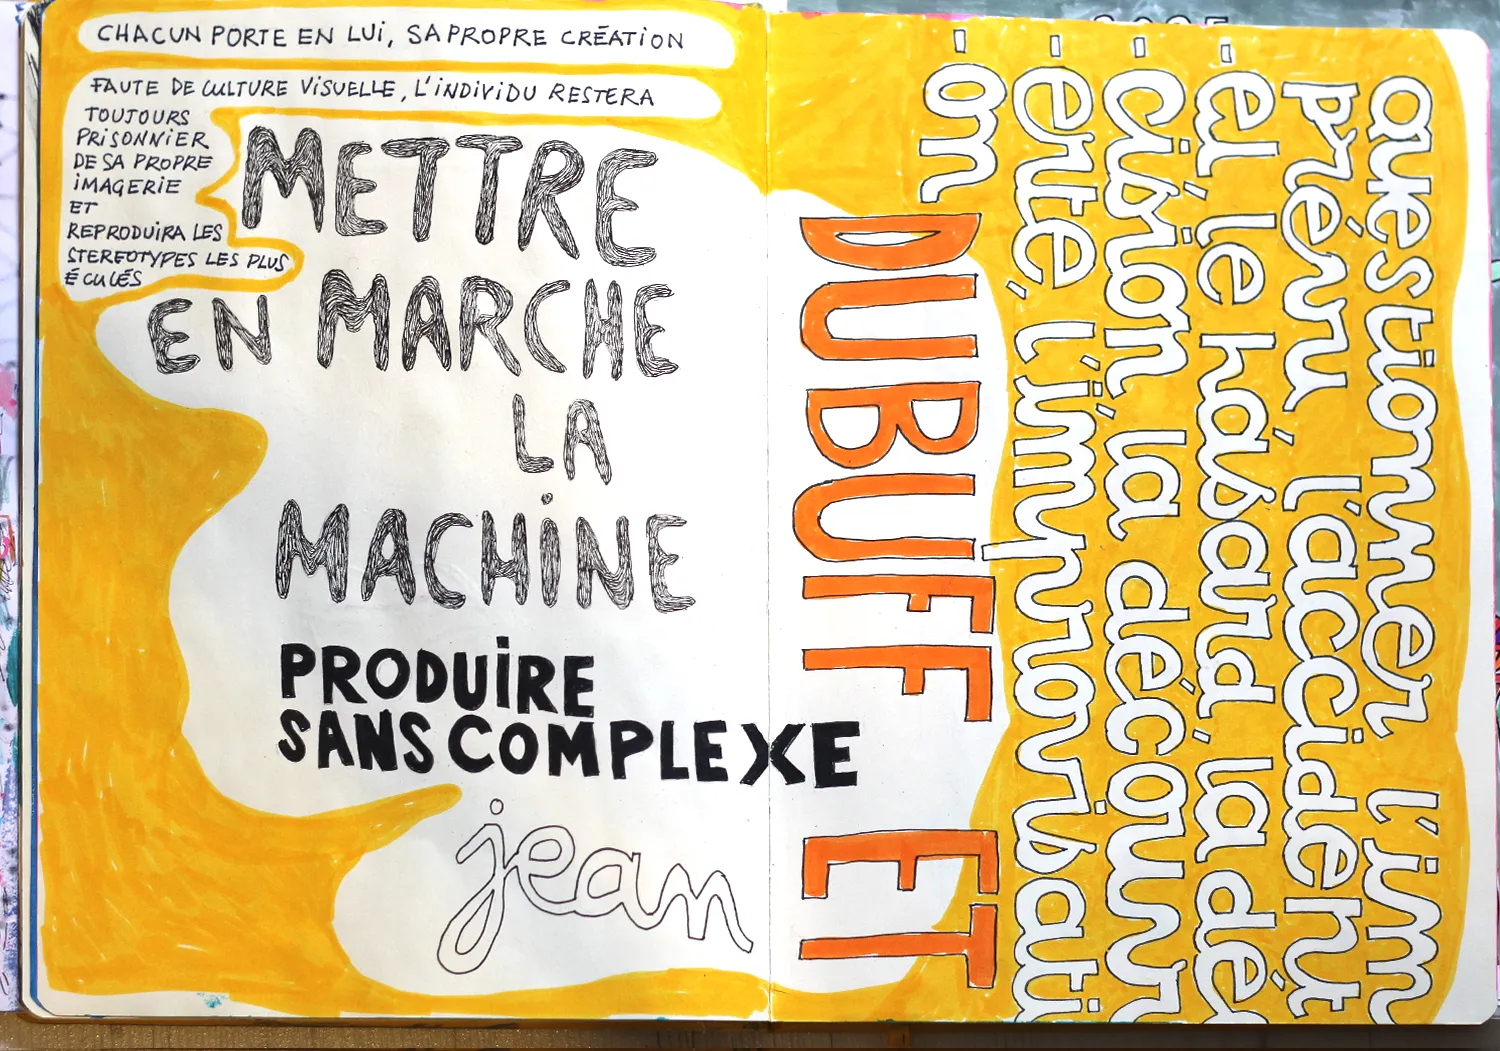 CHACUN PORTE EN LUi, SA PROPRE CRÉATION
FAUTE DE CULTURE VISUELLE, L'INDIVIDU RESTERA
TOUJOURS
PRISONNIER
DE SA PROPRE
IMAGERIE
ET
REPRODUIRA LES
STEREOTYPES LES PLUS
ÉCULÉS
METTRE
EN MARCHE
LA
MACHiNE
PRODUiRE
SANS COMPLEXE
jean
DUBUFFET
questionner l'im
prévu, l'accident
-el, le hasard, la dé
-cision, la découv
-erte, l'improvisati
-on